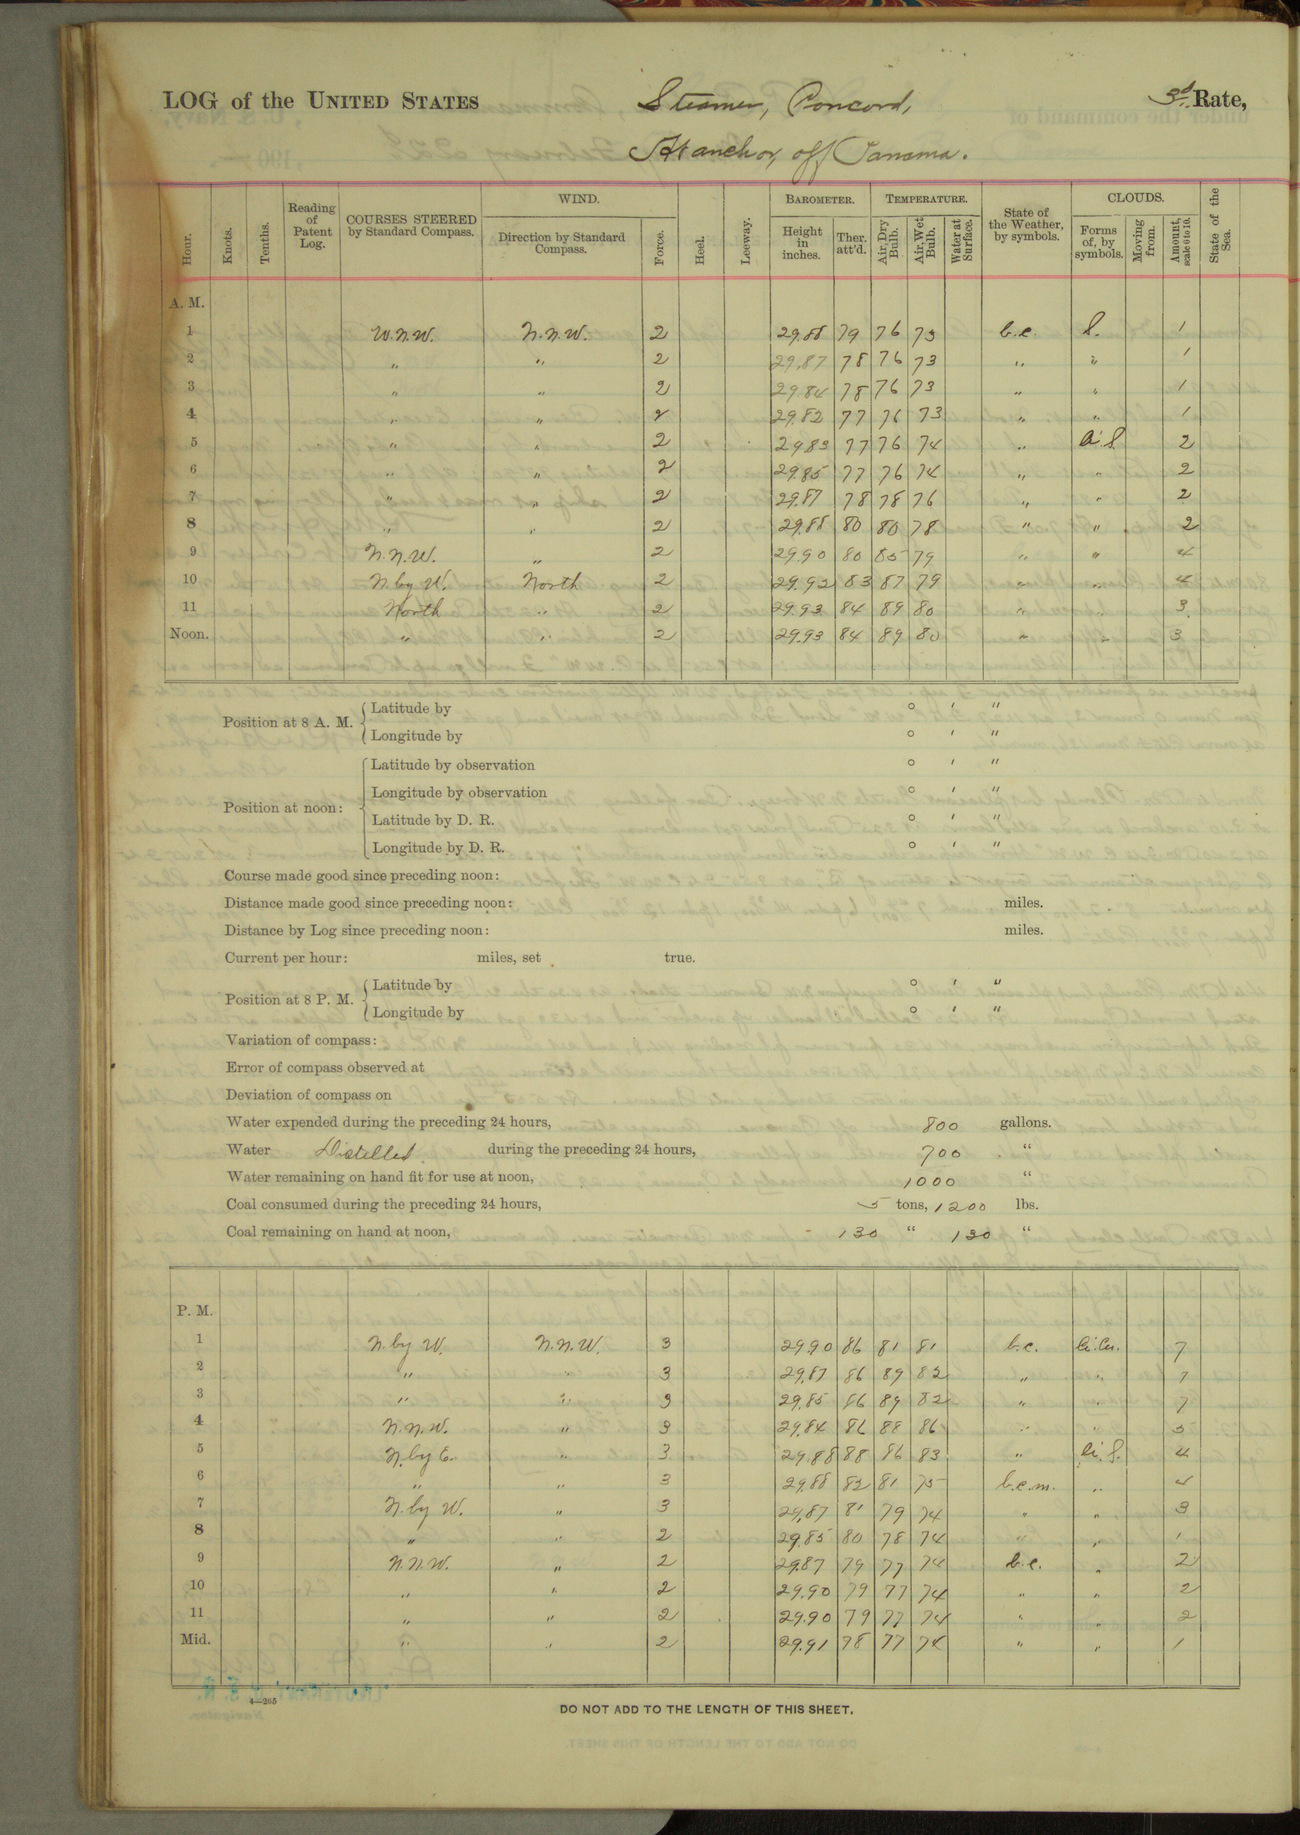 LOG of the UNITED STATES Steamer, Concord, 3d Rate,
At anchor, off Panama.
Hour. Knots. Tenths. Reading of Patent Log. COURSES STEERED by Standard Compass. WIND. Direction by Standard Compass. Force. Heel. Leeway. BAROMETER. Height in inches. Ther. att'd. TEMPERATURE. Air, Dry Bulb. Air, Wet Bulb. Water at Surface. State of the Weather, by symbols. CLOUDS. Forms of, by symbols. Moving from. Amount, scale 0 to 10. State of the Sea.
A. M.
1 W.N.W. N.N.W. 2 29.88 79 76 73 b.c. S. 1
2 " " 2 29.87 78 76 73 " " 1
3 " " 2 29.84 78 76 73 " " 1
4 " " 2 29.82 77 76 73 " " 1
5 " " 2 29.83 77 76 74 " Ci.S. 2
6 " " 2 29.85 77 76 74 " " 2
7 " " 2 29.87 78 78 76 " " 2
8 " " 2 29.88 80 80 78 " " 2
9 N.N.W. " 2 29.90 80 85 79 " " 4
10 N. by W. North 2 29.92 83 87 79 " " 4
11 North " 2 29.93 84 89 80 " " 3
Noon. " " 2 29.93 84 89 80 " " 3
Position at 8 A. M. { Latitude by ° ' "
Longitude by ° ' "
Position at noon: { Latitude by observation ° ' "
Longitude by observation ° ' "
Latitude by D. R. ° ' "
Longitude by D. R. ° ' "
Course made good since preceding noon:
Distance made good since preceding noon: miles.
Distance by Log since preceding noon: miles.
Current per hour: miles, set true.
Position at 8 P. M. { Latitude by ° ' "
Longitude by ° ' "
Variation of compass:
Error of compass observed at
Deviation of compass on
Water expended during the preceding 24 hours, 800 gallons.
Water Distilled during the preceding 24 hours, 700 "
Water remaining on hand fit for use at noon, 1000 "
Coal consumed during the preceding 24 hours, 5 tons, 1200 lbs.
Coal remaining on hand at noon, 130 " 120 "
P. M.
1 N. by W. N.N.W. 3 29.90 86 81 81 b.c. Ci.Cu. 7
2 " " 3 29.87 86 89 82 " " 7
3 " " 3 29.85 86 89 82 " " 7
4 N.N.W. " 3 29.84 86 88 86 " " 5
5 N. by E. " 3 29.88 88 86 83 " Ci.S. 4
6 " " 3 29.88 82 81 75 b.c.m. " 4
7 N. by W. " 3 29.87 81 79 74 " " 3
8 " " 2 29.85 80 78 74 " " 1
9 N.N.W. " 2 29.87 79 77 74 b.c. " 2
10 " " 2 29.90 79 77 74 " " 2
11 " " 2 29.90 79 77 74 " " 2
Mid. " " 2 29.91 78 77 74 " " 1
4—265
DO NOT ADD TO THE LENGTH OF THIS SHEET.